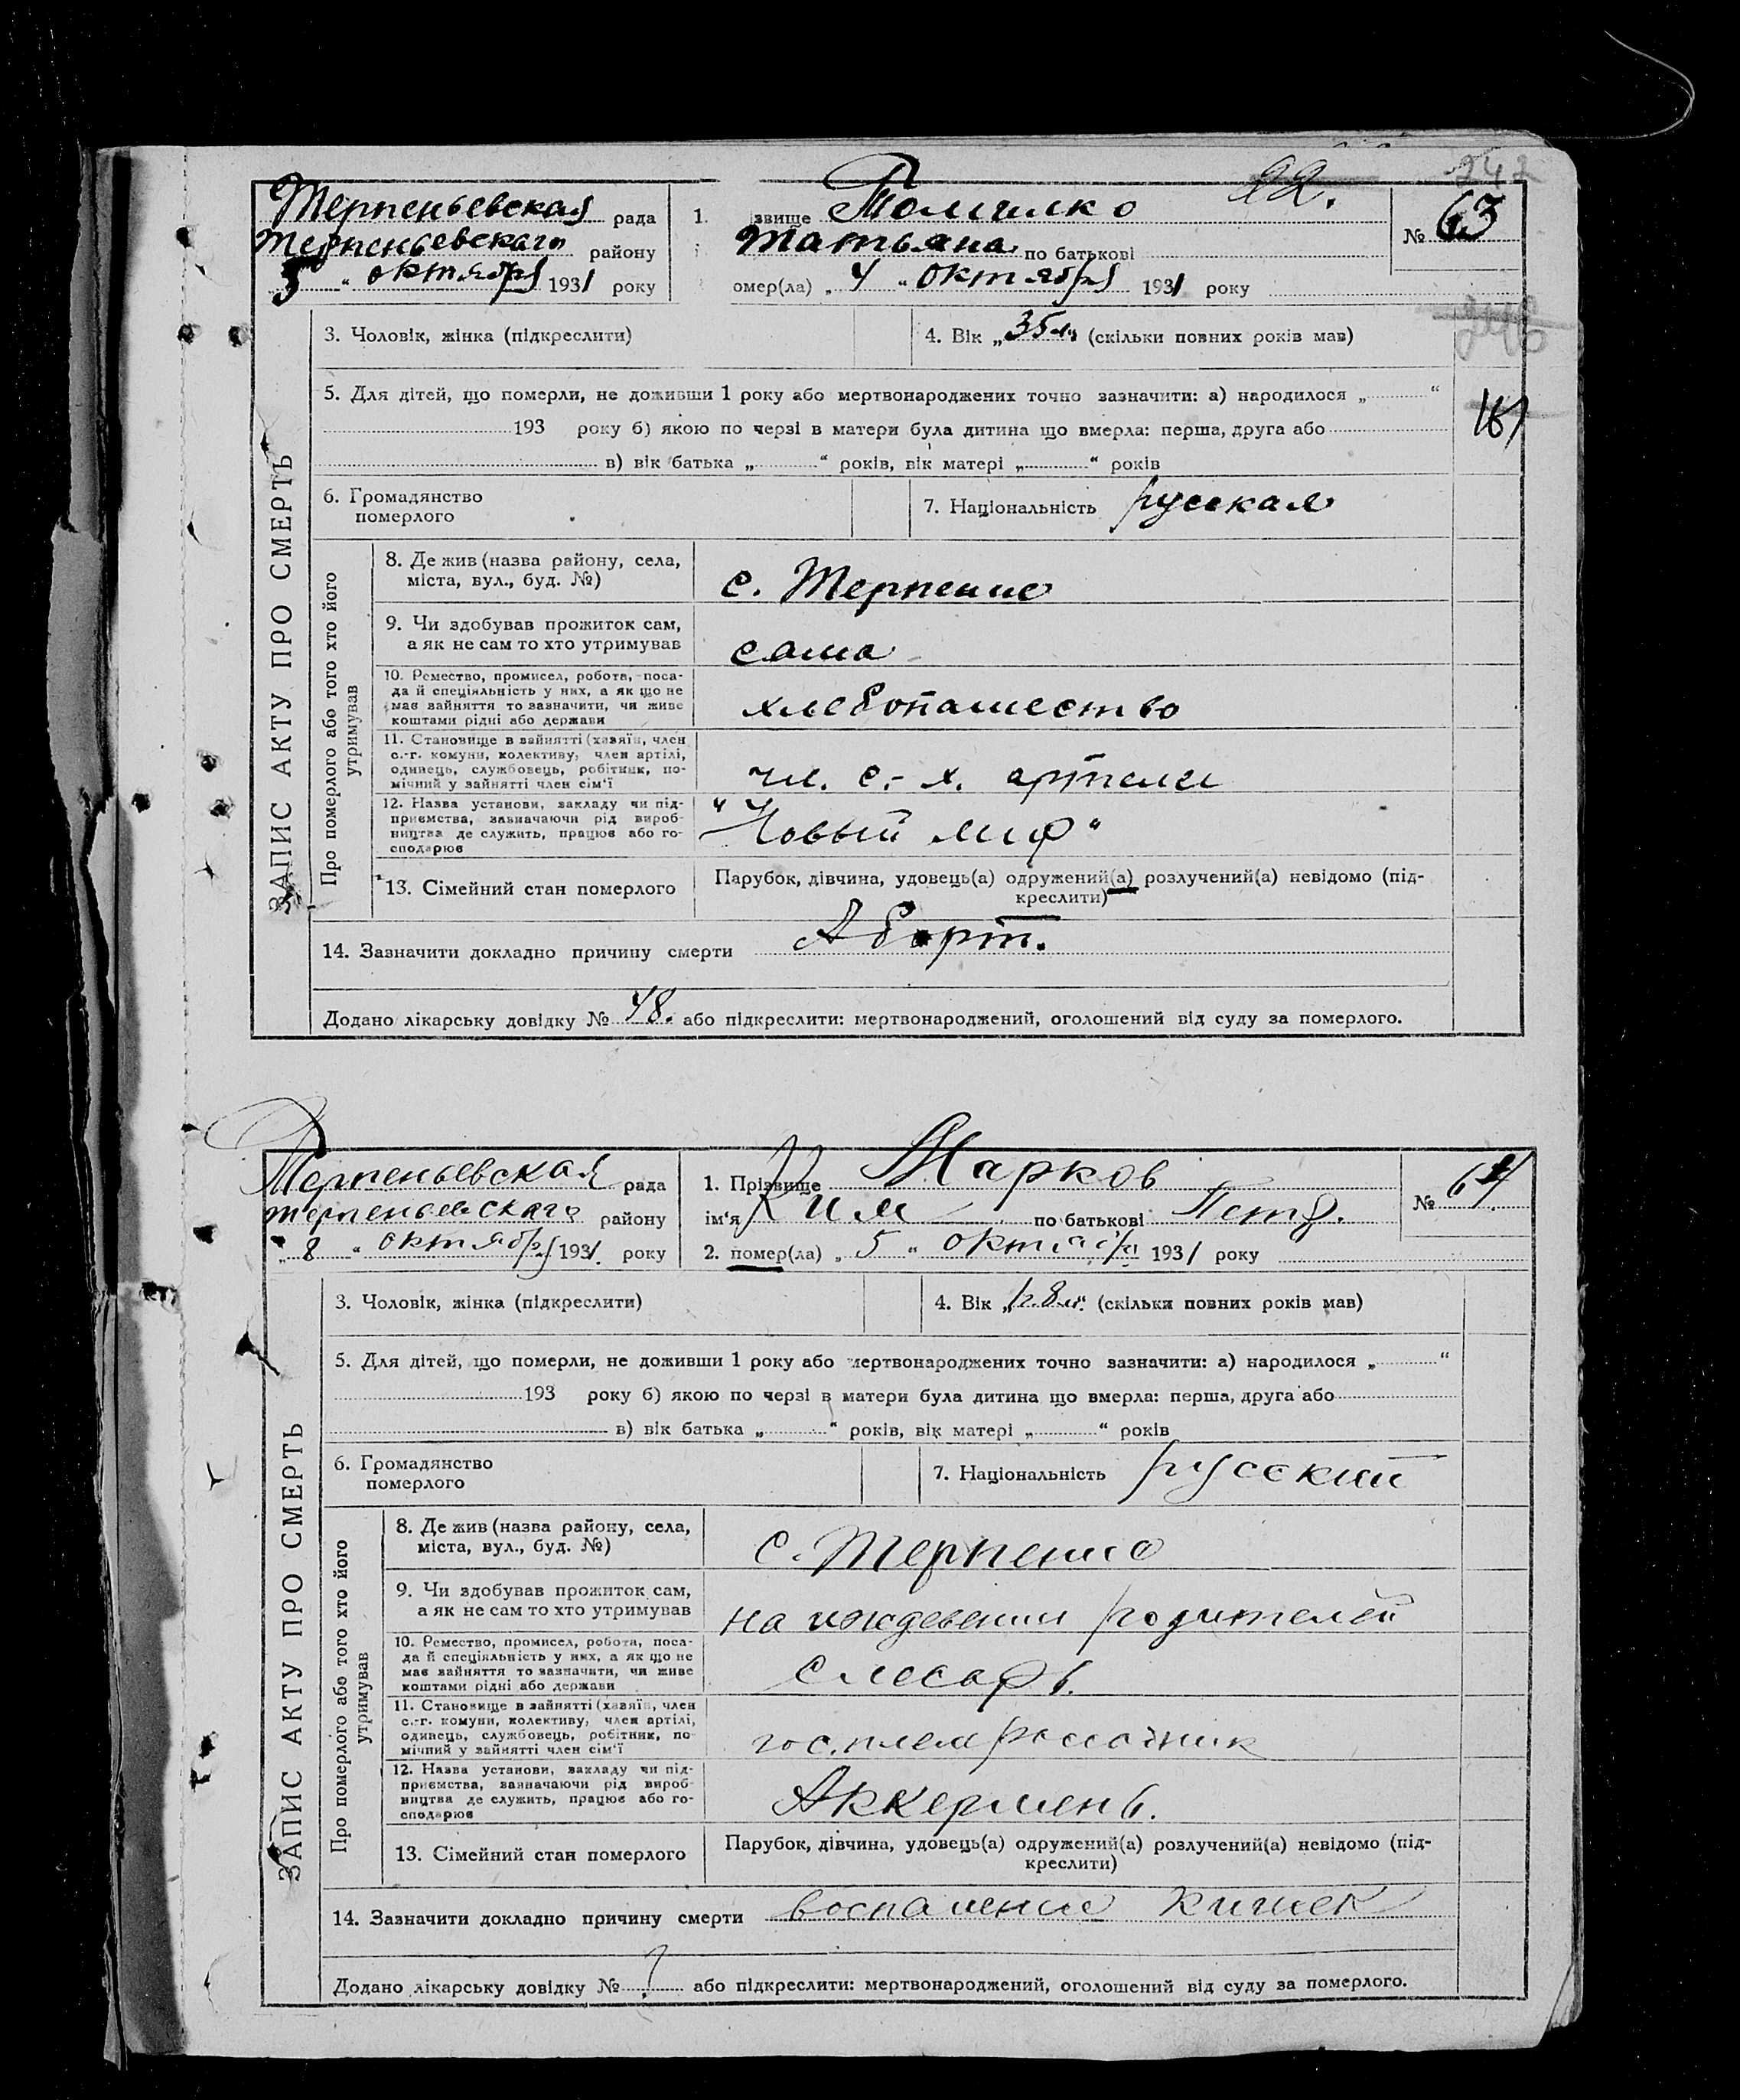 242
22.
Терпеньевская рада 1. звище Толчилко № 63
Терпеньевскаго району Татьяна по батькові
5 " октября 1931 року омер(ла) „ 4 " октября 1931 року
3. Чоловік, жінка (підкреслити) 4. Вік „ 35 л. (скільки повних років мав)
5. Для дітей, що померли, не доживши 1 року або мертвонароджених точно зазначити: а) народилося „ “
193 року б) якою по черзі в матери була дитина що вмерла: перша, друга або
в) вік батька „ “ років, вік матері „ “ років
6. Громадянство
померлого
7. Національність русская
ЗАПИС АКТУ ПРО СМЕРТЬ
Про померлого або того хто його
утримував
8. Де жив (назва району, села,
міста, вул., буд. №)
с. Терпение
9. Чи здобував прожиток сам,
а як не сам то хто утримував
сама
10. Ремество, промисел, робота, поса-
да й спеціяльність у них, а як що не
має зайняття то зазначити, чи живе
коштами рідні або держави
хлебопашество
11. Становище в зайнятті (хазяїн, член
с.-г. комуни, колективу, член артілі,
одинець, службовець, робітник, по-
мічний у зайнятті член сім'ї
чл. с.-х. артели
12. Назва установи, закладу чи під-
приємства, зазначаючи рід вироб-
ництва де служить, працює або го-
сподарює
"Новый мир"
13. Сімейний стан померлого
Парубок, дівчина, удовець(а) одружений(а) розлучений(а) невідомо (під-
креслити)
14. Зазначити докладно причину смерти Аборт.
Додано лікарську довідку № 48. або підкреслити: мертвонароджений, оголошений від суду за померлого.
Терпеньевская рада 1. Прізвище Марков № 64
терпеньевскаго району ім'я Ким по батькові Петр.
„ 8 “ октября 1931. року 2. помер(ла) „ 5 “ октября 1931 року
3. Чоловік, жінка (підкреслити) 4. Вік „ 1 г. 8 м. “ (скільки повних років мав)
5. Для дітей, що померли, не доживши 1 року або мертвонароджених точно зазначити: а) народилося „ “
193 року б) якою по черзі в матери була дитина що вмерла: перша, друга або
в) вік батька „ “ років, вік матері „ “ років
6. Громадянство
померлого
7. Національність русский
ЗАПИС АКТУ ПРО СМЕРТЬ
Про померлого або того хто його
утримував
8. Де жив (назва району, села,
міста, вул., буд. №)
с. Терпение
9. Чи здобував прожиток сам,
а як не сам то хто утримував
на иждевении родителей
10. Ремество, промисел, робота, поса-
да й спеціяльність у них, а як що не
має зайняття то зазначити, чи живе
коштами рідні або держави
слесарь.
11. Становище в зайнятті (хазяїн, член
с.-г. комуни, колективу, член артілі,
одинець, службовець, робітник, по-
мічний у зайнятті член сім'ї
гос.племрассадник
12. Назва установи, закладу чи під-
приємства, зазначаючи рід вироб-
ництва де служить, працює або го-
сподарює
Аккермень.
13. Сімейний стан померлого
Парубок, дівчина, удовець(а) одружений(а) розлучений(а) невідомо (під-
креслити)
14. Зазначити докладно причину смерти воспаление кишек
Додано лікарську довідку № ? або підкреслити: мертвонароджений, оголошений від суду за померлого.